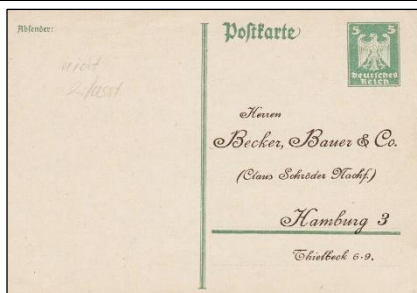 Absender:
Postkarte
5 5
Deutsches
Reich
nicht
Herren
Becker, Bauer & Co.
(Claus Schröder Nachf.)
Hamburg 3
Thielbeck 6-9.